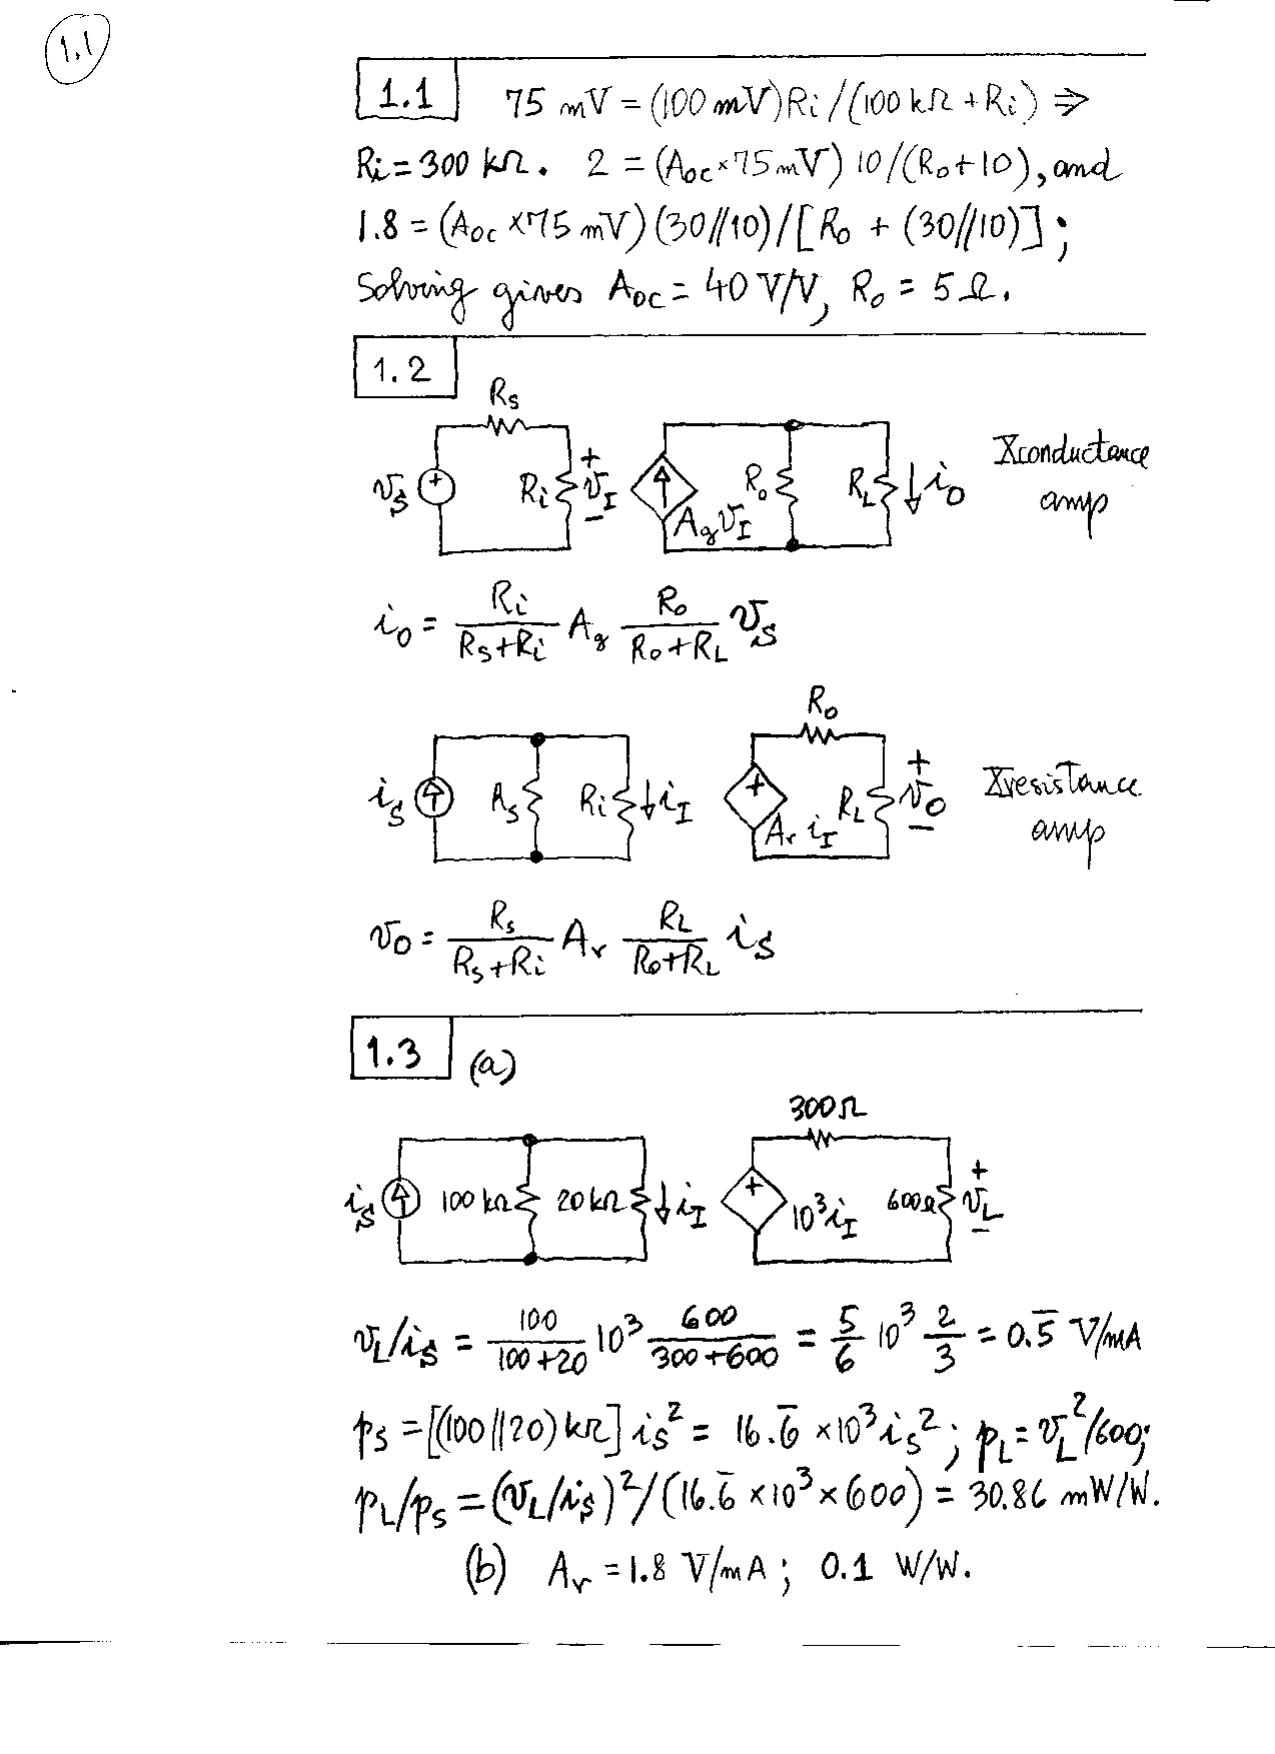 1.1
1.1 75 mV = (100 mV) Ri / (100 kΩ + Ri) ⇒
Ri = 300 kΩ. 2 = (Aoc × 75 mV) 10/(Ro + 10), and
1.8 = (Aoc × 75 mV) (30//10) / [Ro + (30//10)];
Solving gives Aoc = 40 V/V, Ro = 5 Ω.
1.2
Rs
vS + Ri + vI − AgvI Ro RL iO Xconductance
amp
iO = Ri/(Rs+Ri) Ag Ro/(Ro+RL) vS
Ro
iS As Ri iI + Ar iI RL + vO − Xresistance
amp
vO = Rs/(Rs+Ri) Ar RL/(Ro+RL) iS
1.3 (a)
300Ω
iS 100 kΩ 20 kΩ iI + 10³iI 600Ω + vL −
vL/iS = 100/(100+20) 10³ 600/(300+600) = 5/6 10³ 2/3 = 0.5̅ V/mA
pS = [(100//20) kΩ] iS² = 16.6̅ × 10³ iS²; pL = vL²/600;
pL/pS = (vL/iS)²/(16.6̅ × 10³ × 600) = 30.86 mW/W.
(b) Ar = 1.8 V/mA; 0.1 W/W.